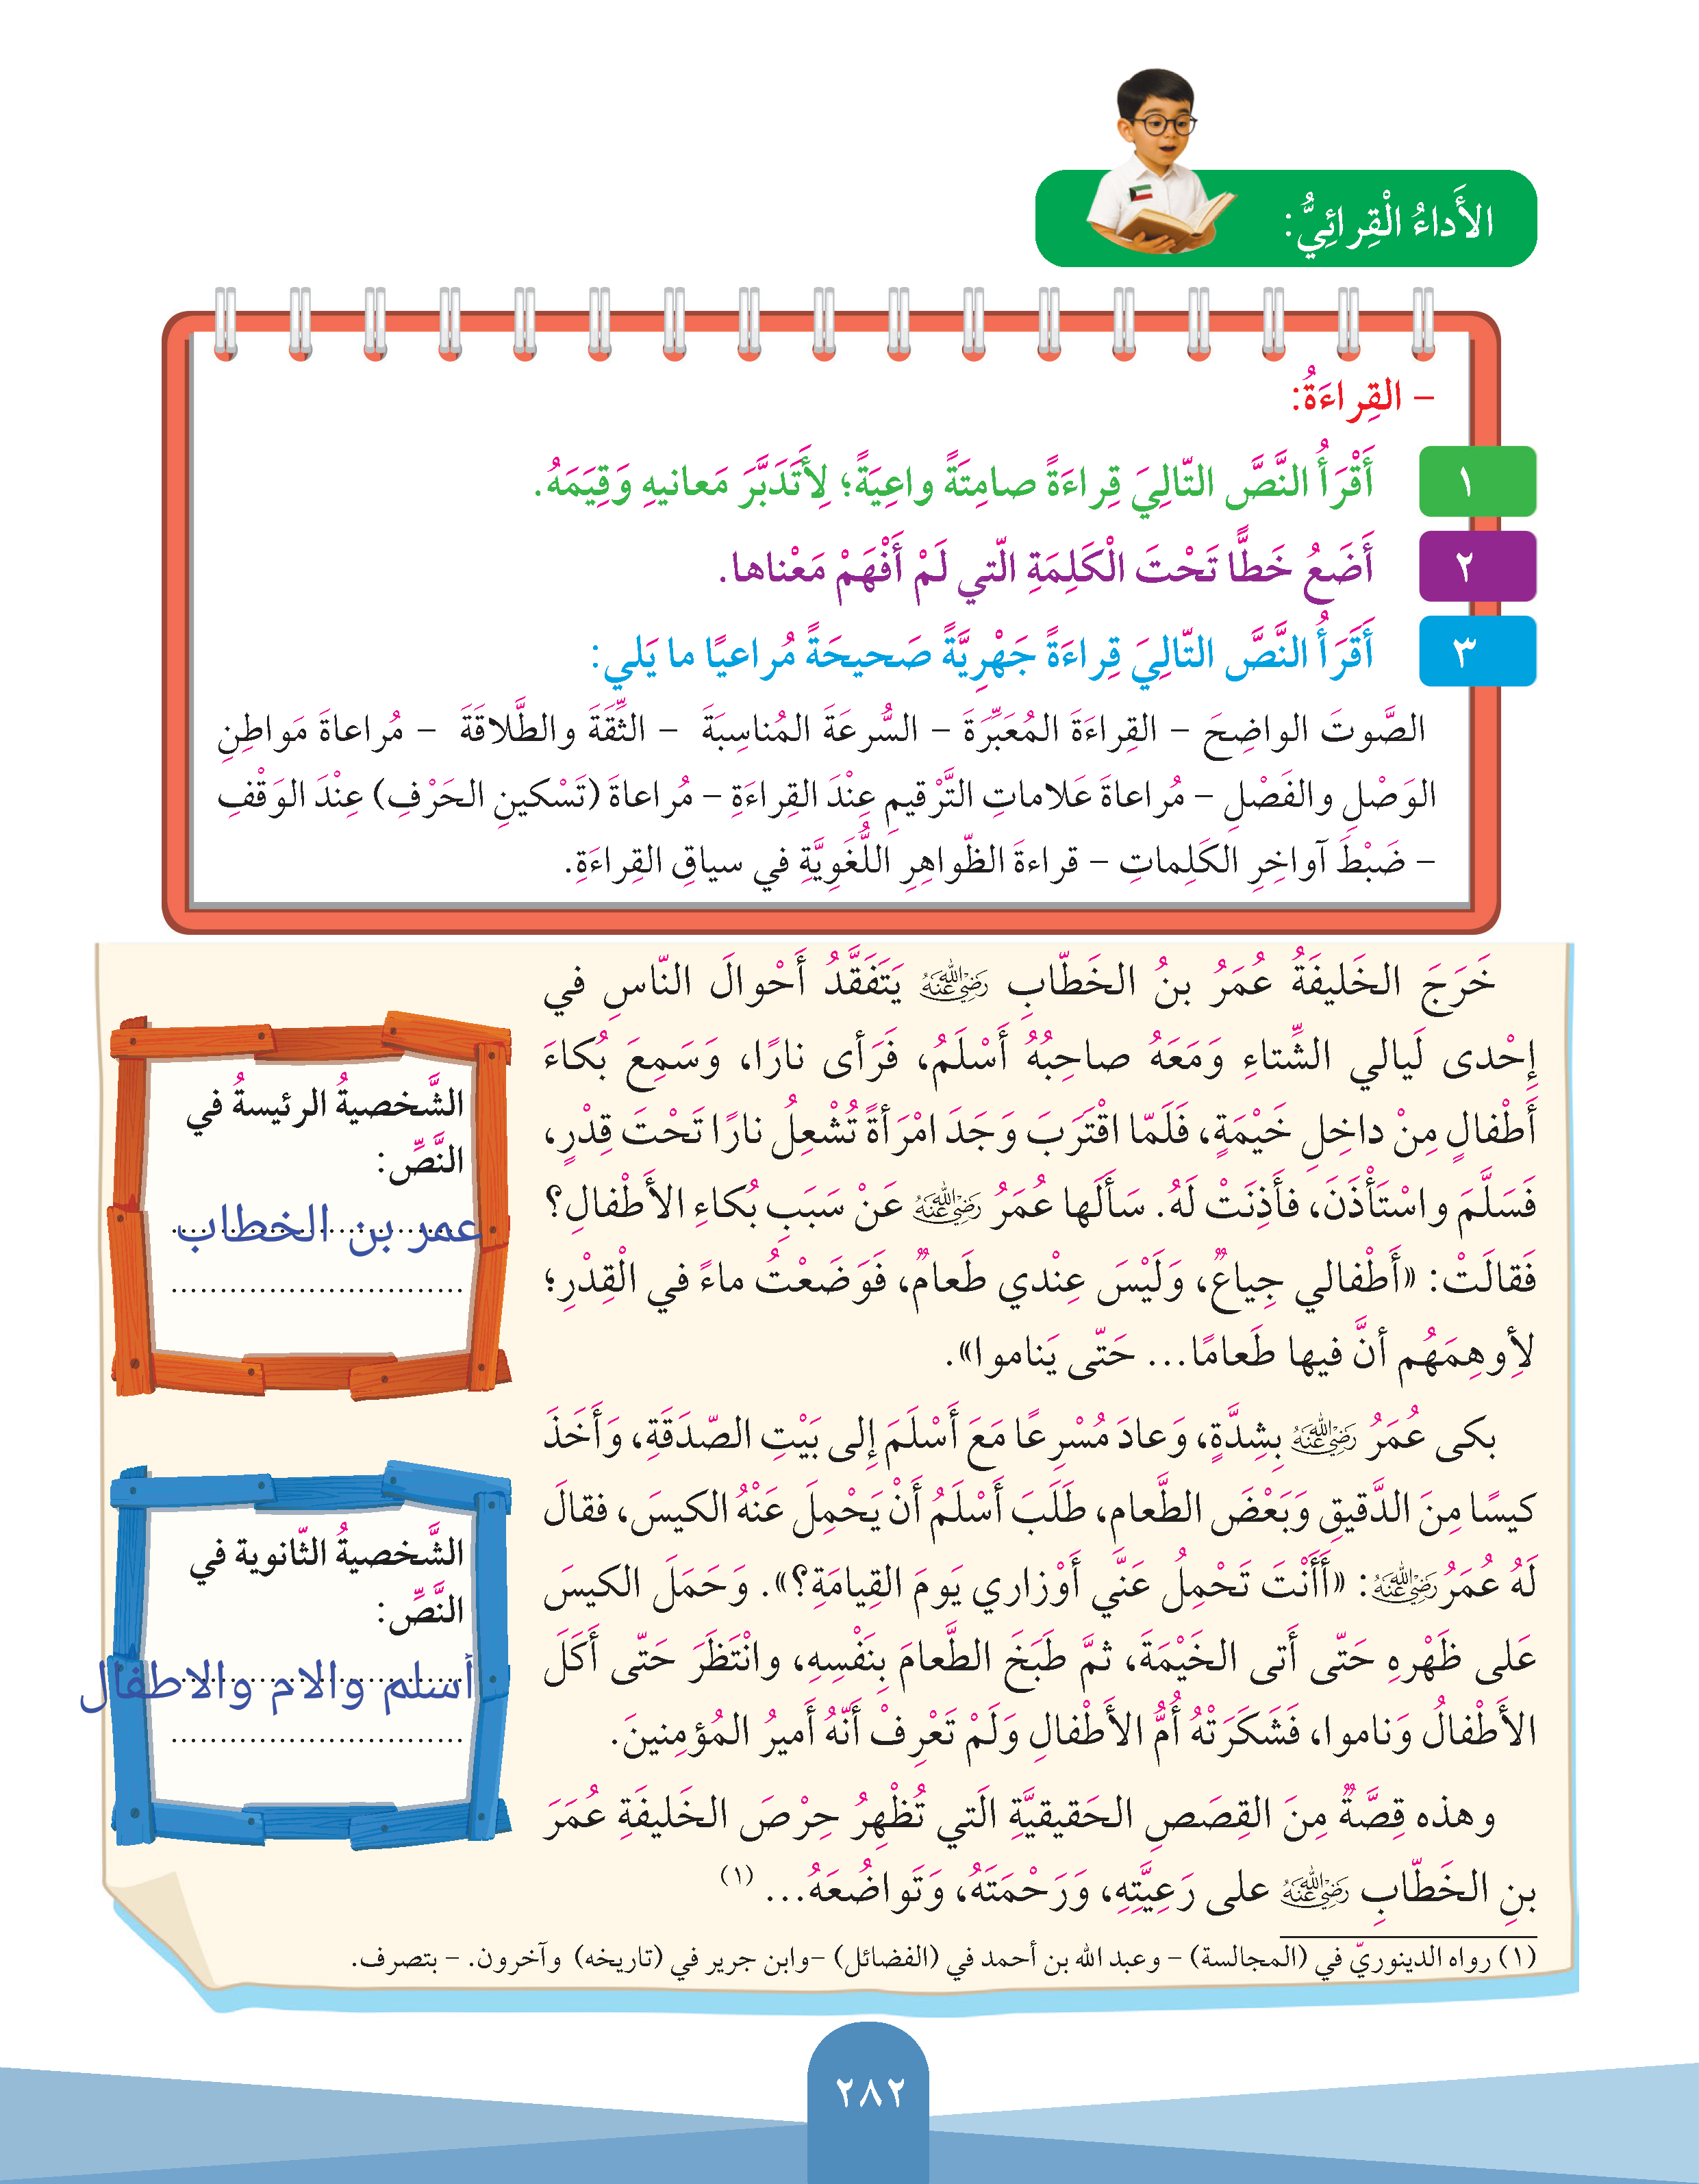 الأَداءُ الْقِرائِيُّ:
– القِراءَةُ:
١ أَقْرَأُ النَّصَّ التّالِيَ قِراءَةً صامِتَةً واعِيَةً؛ لِأَتَدَبَّرَ مَعانيهِ وَقِيَمَهُ.
٢ أَضَعُ خَطًّا تَحْتَ الْكَلِمَةِ الّتي لَمْ أَفْهَمْ مَعْناها.
٣ أَقَرَأُ النَّصَّ التّالِيَ قِراءَةً جَهْرِيَّةً صَحيحَةً مُراعيًا ما يَلي:
الصَّوتَ الواضِحَ – القِراءَةَ المُعَبِّرَةَ – السُّرعَةَ المُناسِبَةَ – الثِّقَةَ والطَّلاقَةَ – مُراعاةَ مَواطِنِ
الوَصْلِ والفَصْلِ – مُراعاةَ عَلاماتِ التَّرْقيمِ عِنْدَ القِراءَةِ – مُراعاةَ (تَسْكينِ الحَرْفِ) عِنْدَ الوَقْفِ
– ضَبْطَ آواخِرِ الكَلِماتِ – قراءةَ الظّواهِرِ اللُّغَوِيَّةِ في سياقِ القِراءَةِ.
خَرَجَ الخَليفَةُ عُمَرُ بنُ الخَطّابِ رَضِيَ اللهُ عَنْهُ يَتَفَقَّدُ أَحْوالَ النّاسِ في
إِحْدى لَيالي الشِّتاءِ وَمَعَهُ صاحِبُهُ أَسْلَمُ، فَرَأى نارًا، وَسَمِعَ بُكاءَ
أَطْفالٍ مِنْ داخِلِ خَيْمَةٍ، فَلَمّا اقْتَرَبَ وَجَدَ امْرَأةً تُشْعِلُ نارًا تَحْتَ قِدْرٍ،
فَسَلَّمَ واسْتَأْذَنَ، فأَذِنَتْ لَهُ. سَأَلَها عُمَرُ رَضِيَ اللهُ عَنْهُ عَنْ سَبَبِ بُكاءِ الأَطْفالِ؟
فَقالَتْ: «أَطْفالي جِياعٌ، وَلَيْسَ عِنْدي طَعامٌ، فَوَضَعْتُ ماءً في الْقِدْرِ؛
لِأوهِمَهُم أنَّ فيها طَعامًا... حَتّى يَناموا».
بكى عُمَرُ رَضِيَ اللهُ عَنْهُ بِشِدَّةٍ، وَعادَ مُسْرِعًا مَعَ أَسْلَمَ إِلى بَيْتِ الصّدَقَةِ، وَأَخَذَ
كيسًا مِنَ الدَّقيقِ وَبَعْضَ الطَّعام، طَلَبَ أَسْلَمُ أَنْ يَحْمِلَ عَنْهُ الكيسَ، فقالَ
لَهُ عُمَرُ رَضِيَ اللهُ عَنْهُ: «أَأَنْتَ تَحْمِلُ عَنَّي أَوْزاري يَومَ القِيامَةِ؟». وَحَمَلَ الكيسَ
عَلى ظَهْرِهِ حَتّى أَتى الخَيْمَةَ، ثمَّ طَبَخَ الطَّعامَ بِنَفْسِهِ، وانْتَظَرَ حَتّى أَكَلَ
الأَطْفالُ وَناموا، فَشَكَرَتْهُ أُمُّ الأَطْفالِ وَلَمْ تَعْرِفْ أَنّهُ أَميرُ المُؤمِنينَ.
وهذه قِصَّةٌ مِنَ القِصَصِ الحَقيقيَّةِ الَتي تُظْهِرُ حِرْصَ الخَليفَةِ عُمَرَ
بنِ الخَطّابِ رَضِيَ اللهُ عَنْهُ على رَعِيَّتِهِ، وَرَحْمَتَهُ، وَتَواضُعَهُ... (١)
الشَّخصيةُ الرئيسةُ في
النَّصِّ:
عمر بن الخطاب
الشَّخصيةُ الثّانوية في
النَّصِّ:
أسلم والام والاطفال
(١) رواه الدينوريّ في (المجالسة) – وعبد الله بن أحمد في (الفضائل) –وابن جرير في (تاريخه) وآخرون. – بتصرف.
٢٨٢